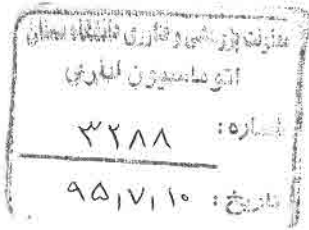 معاونت پژوهشی و فناوری دانشگاه سمنان
اتوماسیون اداری
شماره: ۳۲۸۸
تاریخ: ۹۵٫۷٫۱۰